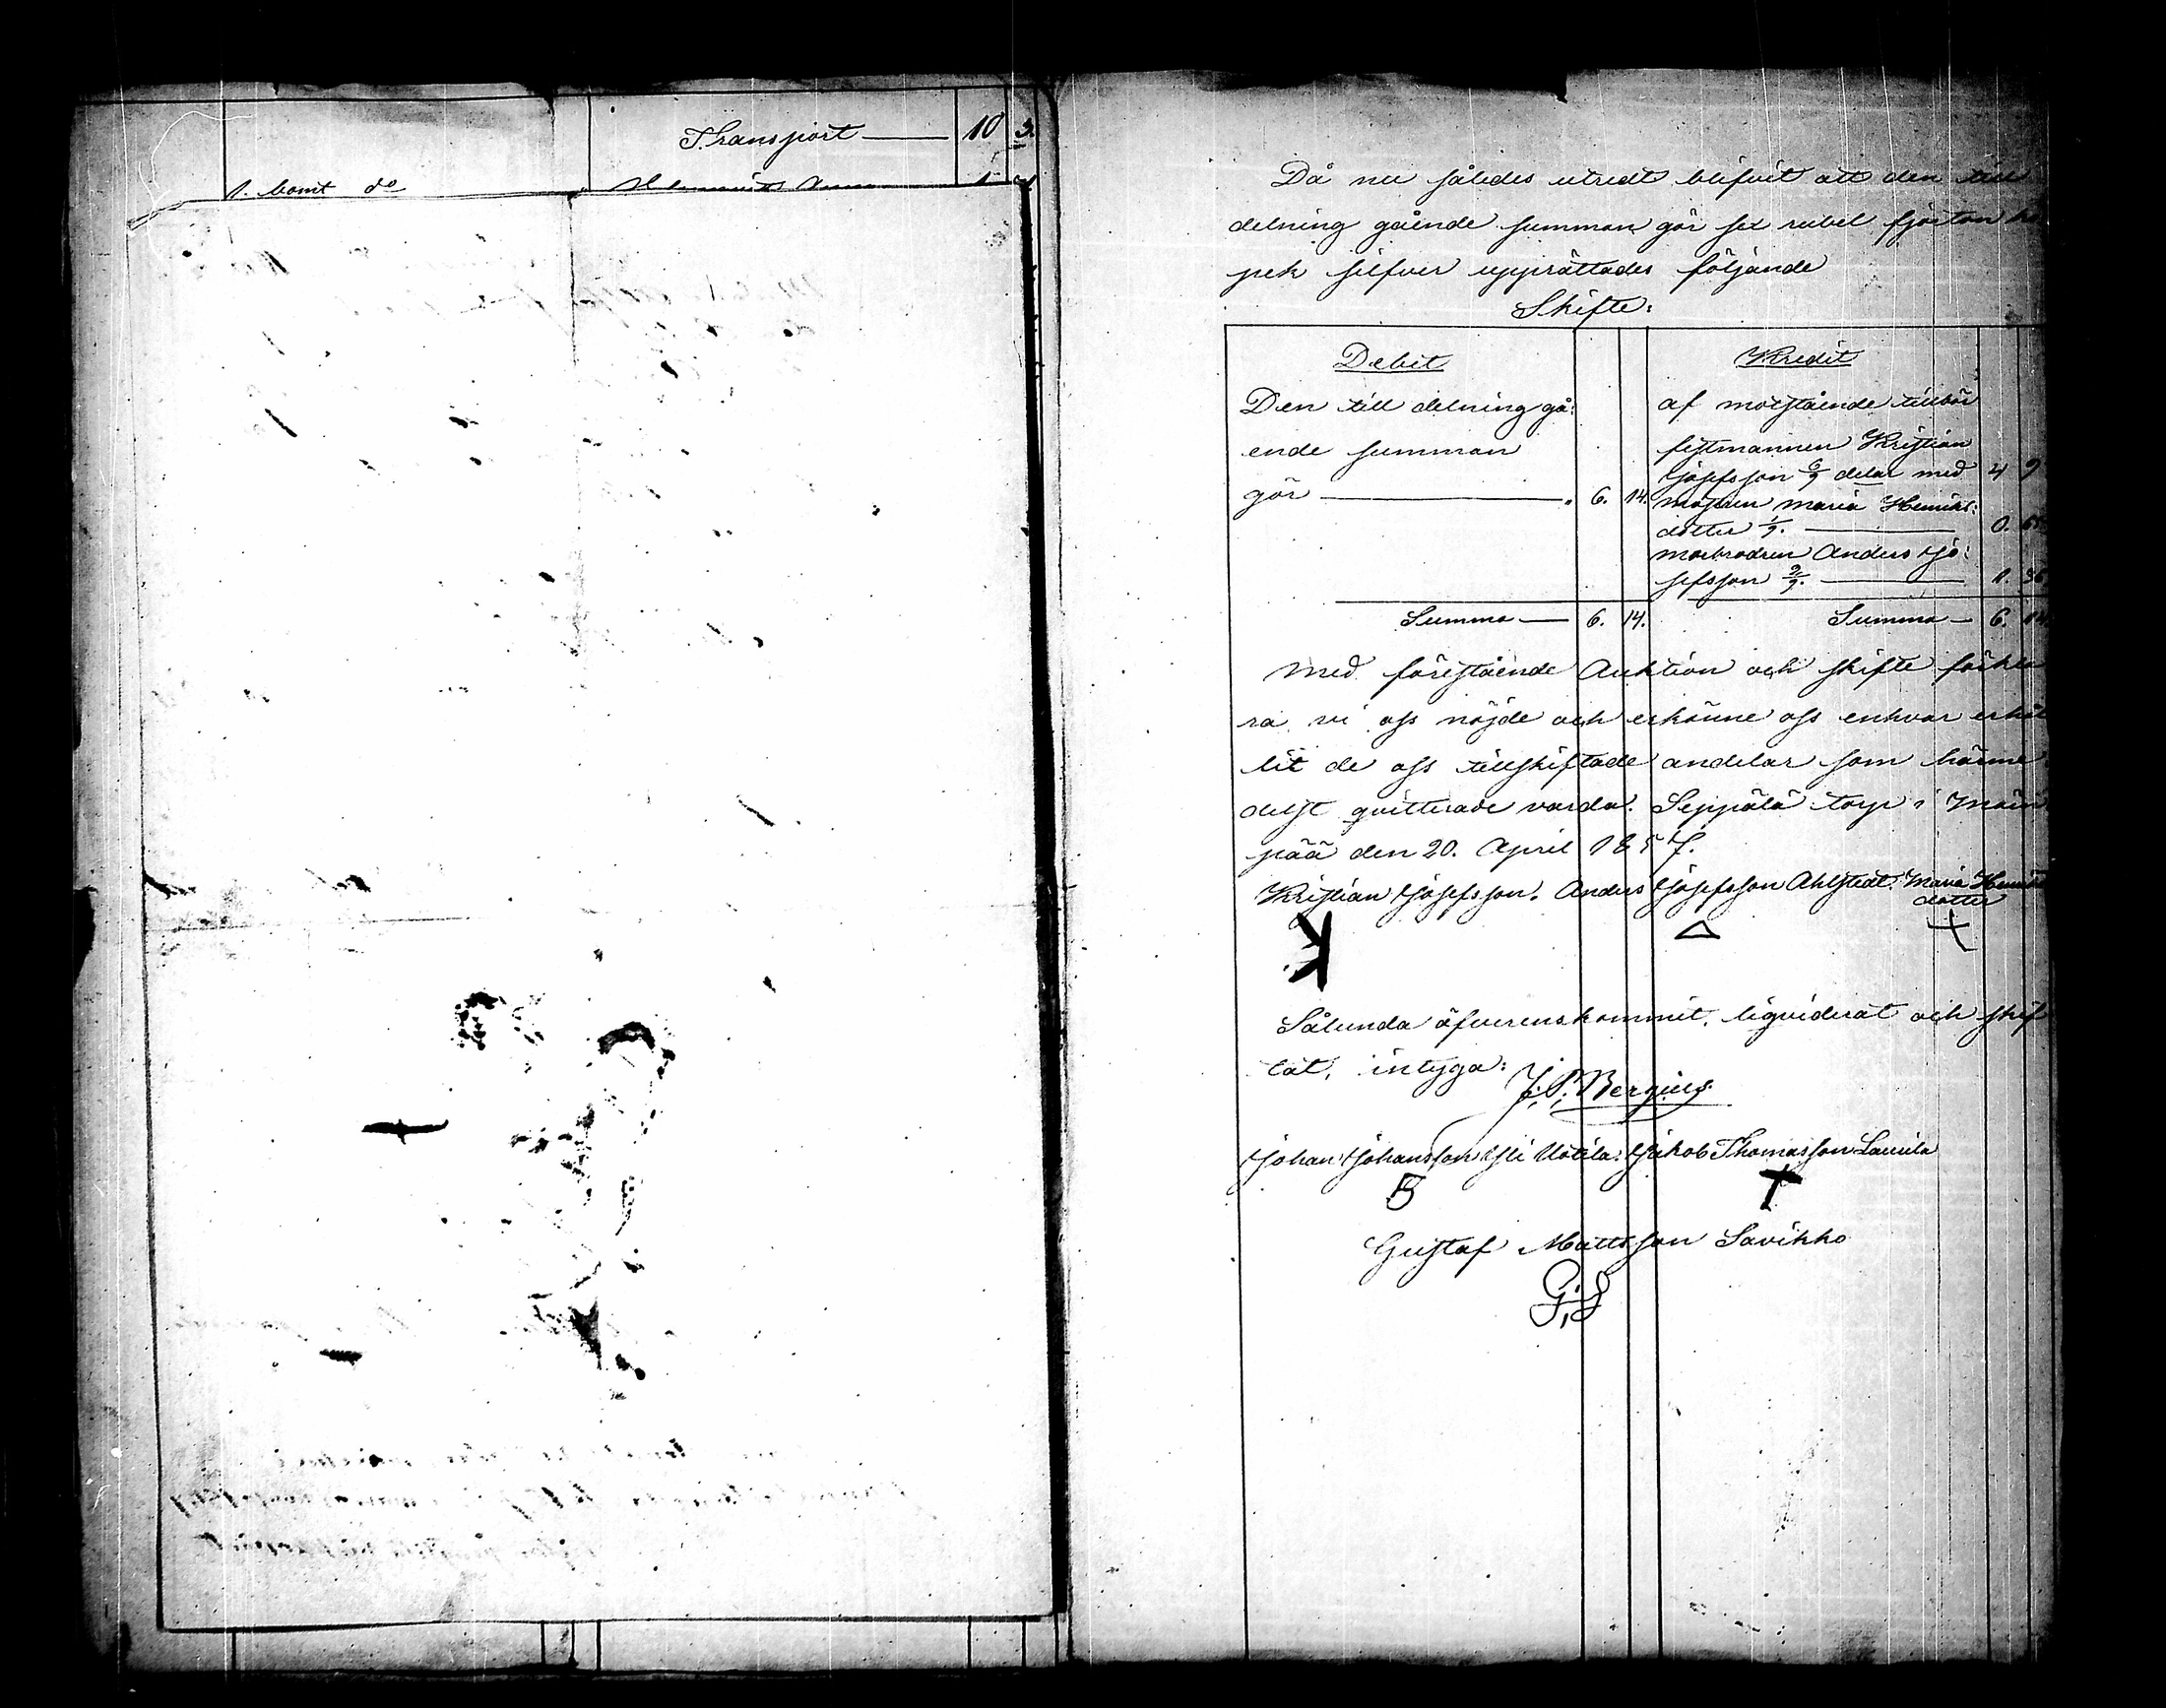 Transport — 10 3.
1. bomt do
Då nu således utredt blifvit att den till
delning gående summan gör sex rubel fjorton ko
pek silfver upprättades följande
Skifte:
Debit
Den till delning gå:
ende summan
gör — 6. 14.
Summa — 6. 14.
Kredit
af motstående tillkör
festmannen Kristian
Josefsson 6/9 delar med 4 9
mostren Maria Henriks:
dotter 1/9. — 0. 68
morbrodren Anders Jo:
sefsson 2/9. — 1. 36
Summa — 6. 14
Med förestående Auktion och skifte förkla
ra vi oss nöjde och erkänne oss enhvar erhål
lit de oss tillskiftade andelar som härme
delst quitterade varda. Seppälä torp i Mäen
pää den 20. April 1857.
Kristian Josefsson. Anders Josefsson Ahlstedt. Maria Henriks
dotter
Sålunda öfverenskommit, liquiderat och skif
tat, intyga:
J. P. Bergius.
Johan Johansson Yli Uotila. Jakob Thomasson Laurila
Gustaf Mattsson Savikko
G. S